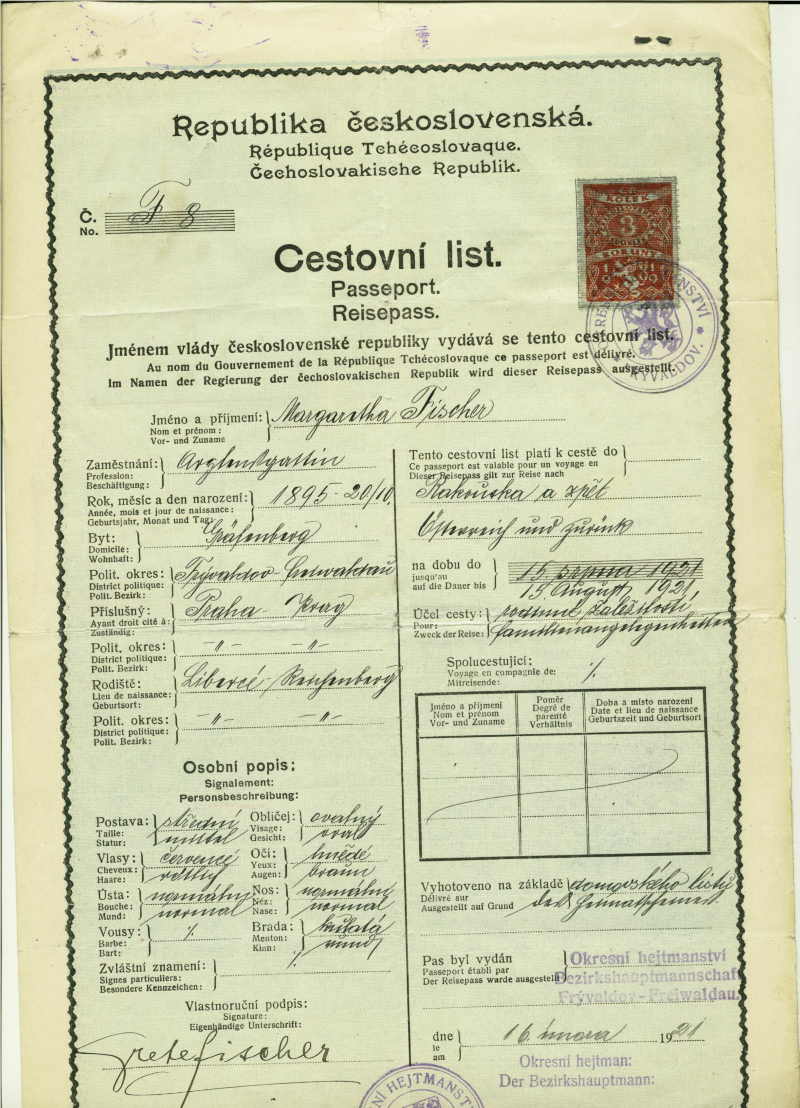 Republika československá.
République Tchécoslovaque.
Čechoslovakische Republik.
Č.
No.
F 8
KOLEK
3
KORUNY
Cestovní list.
Passeport.
Reisepass.
Jménem vlády československé republiky vydává se tento cestovní list.
Au nom du Gouvernement de la République Tchécoslovaque ce passeport est délivré.
Im Namen der Regierung der čechoslovakischen Republik wird dieser Reisepass ausgestellt.
FRÝVALDOV.
Jméno a příjmení:
Nom et prénom:
Vor- und Zuname
Margaretha Fischer
Zaměstnání:
Profession:
Beschäftigung:
Rok, měsíc a den narození:
Année, mois et jour de naissance:
Geburtsjahr, Monat und Tag:
1895 - 20/10.
Byt:
Domicile:
Wohnhaft:
Gräfenberg
Polit. okres:
District politique:
Polit. Bezirk:
Frývaldov - Freiwaldau
Příslušný:
Ayant droit cité à:
Zuständig:
Praha - Prag
Polit. okres:
District politique:
Polit. Bezirk:
-"- -"-
Rodiště:
Lieu de naissance:
Geburtsort:
Liberec - Reichenberg
Polit. okres:
District politique:
Polit. Bezirk:
-"- -"-
Osobní popis:
Signalement:
Personsbeschreibung:
Postava:
Taille:
Statur:
střední
mittel
Obličej:
Visage:
Gesicht:
ovalný
oval
Vlasy:
Cheveux:
Haare:
rötlich
Oči:
Yeux:
Augen:
hnědé
braun
Ústa:
Bouche:
Mund:
normální
normal
Nos:
Néz:
Nase:
normální
normal
Vousy:
Barbe:
Bart:
%
Brada:
Menton:
Kinn:
kulatá
rund
Zvláštní znamení:
Signes particuliers:
Besondere Kennzeichen:
%
Vlastnoruční podpis:
Signature:
Eigenhändige Unterschrift:
Grete Fischer
Tento cestovní list platí k cestě do
Ce passeport est valable pour un voyage en
Dieser Reisepass gilt zur Reise nach
Rakouska a zpět
Österreich und zurück
na dobu do
jusqu'au
auf die Dauer bis
15. srpna 1921
15. August 1921
Účel cesty:
Pour:
Zweck der Reise:
rodinné záležitosti,
Familienangelegenheiten
Spolucestující:
Voyage en compagnie de:
Mitreisende:
%
Jméno a příjmení
Nom et prénom
Vor- und Zuname
Poměr
Degré de
parenté
Verhältnis
Doba a místo narození
Date et lieu de naissance
Geburtszeit und Geburtsort
Vyhotoveno na základě
Délivré sur
Ausgestellt auf Grund
domovského listu
des Heimatscheines
Pas byl vydán
Passeport établi par
Der Reisepass wurde ausgestellt
Okresní hejtmanství
Bezirkshauptmannschaft
Frývaldov-Freiwaldau.
dne
le
am
16. února 1921
Okresní hejtman:
Der Bezirkshauptmann:
HEJTMANSTV